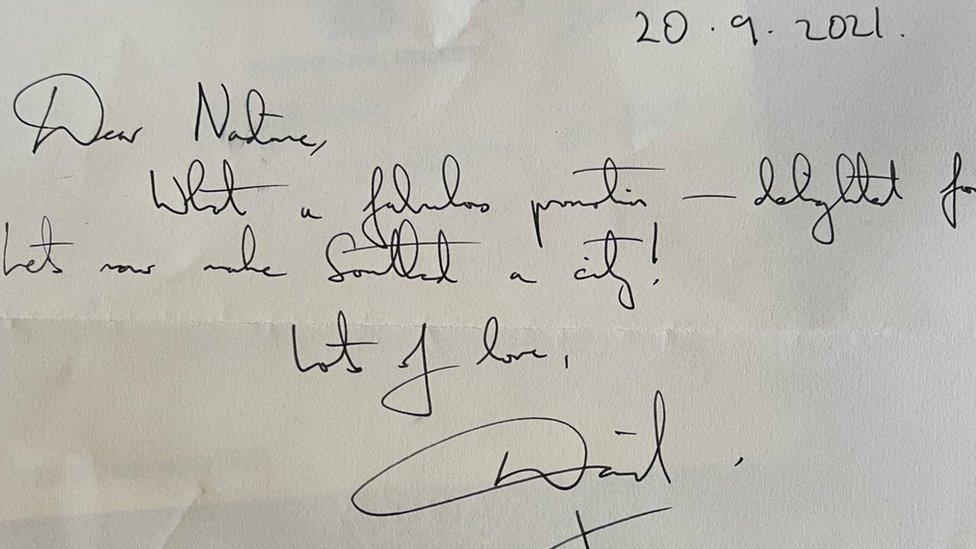 20.9.2021.
Dear Nadine,
What a fabulous promotion — delighted fo
Lets now make Southend a city!
Lots of love,
David
x